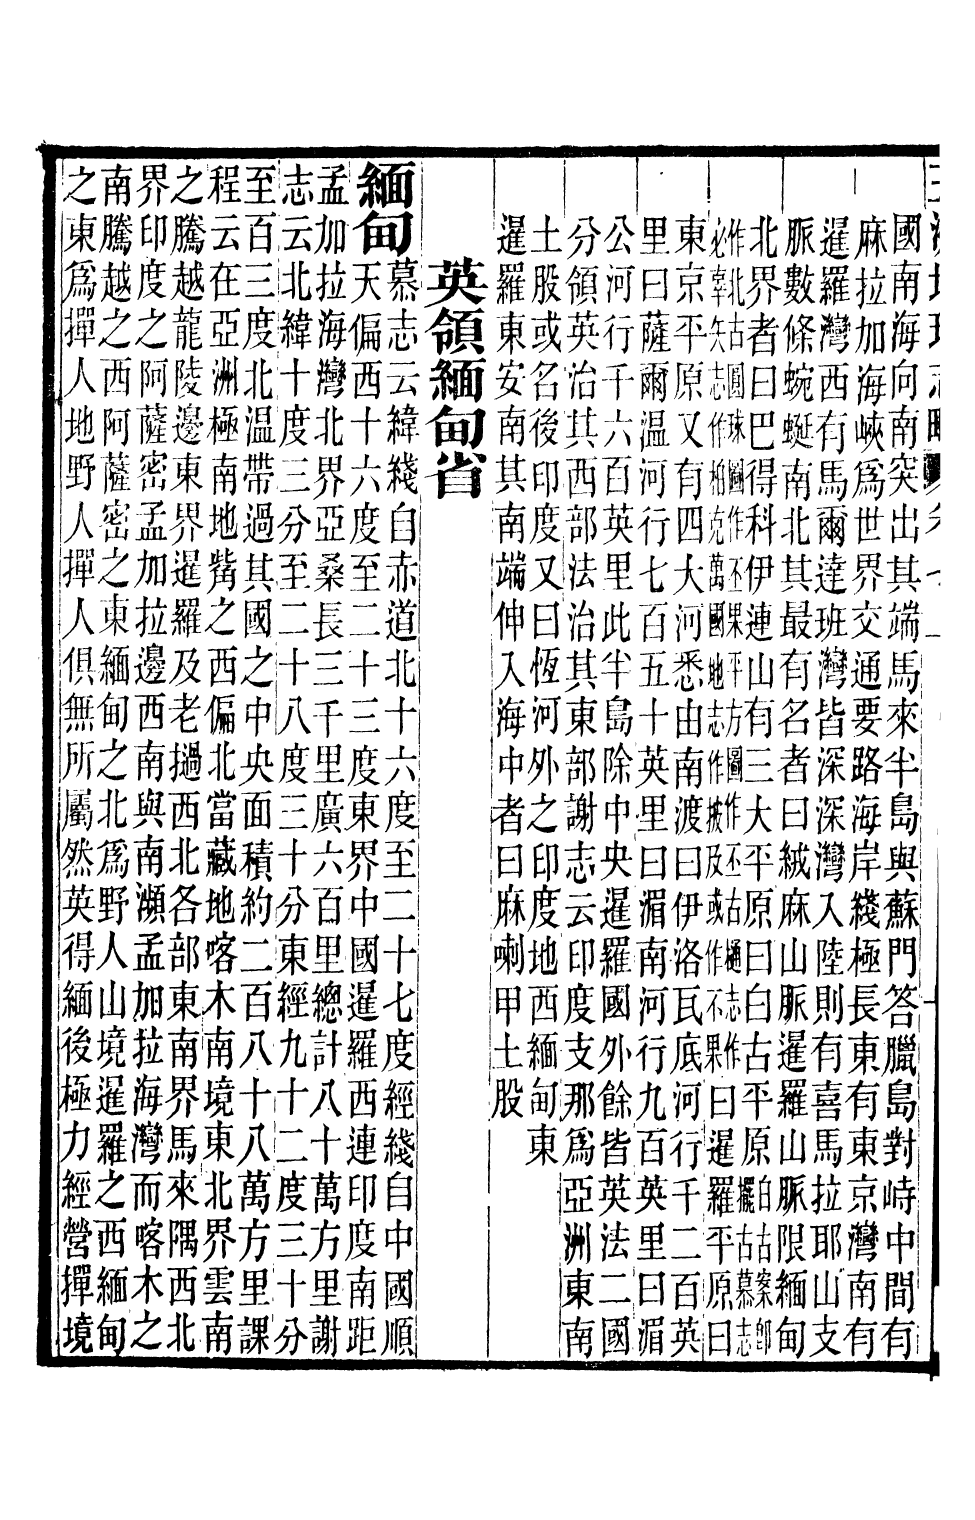 國南海向南突出其端馬來半島與蘇門答臘島對峙中間有
麻拉加海峽爲世界交通要路海岸綫極長東有東京灣南有
暹羅灣西有馬爾達班灣皆深深灣入陸則有喜馬拉耶山支
脈數條蜿蜒南北其最有名者曰絨麻山脈暹羅山脈限緬甸
北界者曰巴得科伊連山有三大平原曰白古平原白古案卽擺古慕志
作北古圓球圖作丕果平方圖作丕古樋志作必宰矢志作柏克萬國地志作披及或作不果曰暹羅平原曰
東京平原又有四大河悉由南渡曰伊洛瓦底河行千二百英
里曰薩爾温河行七百五十英里曰湄南河行九百英里曰湄
公河行千六百英里此半島除中央暹羅國外餘皆英法二國
分領英治其西部法治其東部謝志云印度支那爲亞洲東南
土股或名後印度又曰恆河外之印度地西緬甸東
暹羅東安南其南端伸入海中者曰麻喇甲土股
英領緬甸省
緬甸慕志云緯綫自赤道北十六度至二十七度經綫自中國順
天偏西十六度至二十三度東界中國暹羅西連印度南距
孟加拉海灣北界亞桑長三千里廣六百里總計八十萬方里謝
志云北緯十度三分至二十八度三十分東經九十二度三十分
至百三度北温帶過其國之中央面積約二百八十八萬方里課
程云在亞洲極南地觜之西偏北當藏地喀木南境東北界雲南
之騰越龍陵邊東界暹羅及老撾西北各部東南界馬來隅西北
界印度之阿薩密孟加拉邊西南與南瀕孟加拉海灣而喀木之
南騰越之西阿薩密之東緬甸之北爲野人山境暹羅之西緬甸
之東爲撣人地野人撣人俱無所屬然英得緬後極力經營撣境